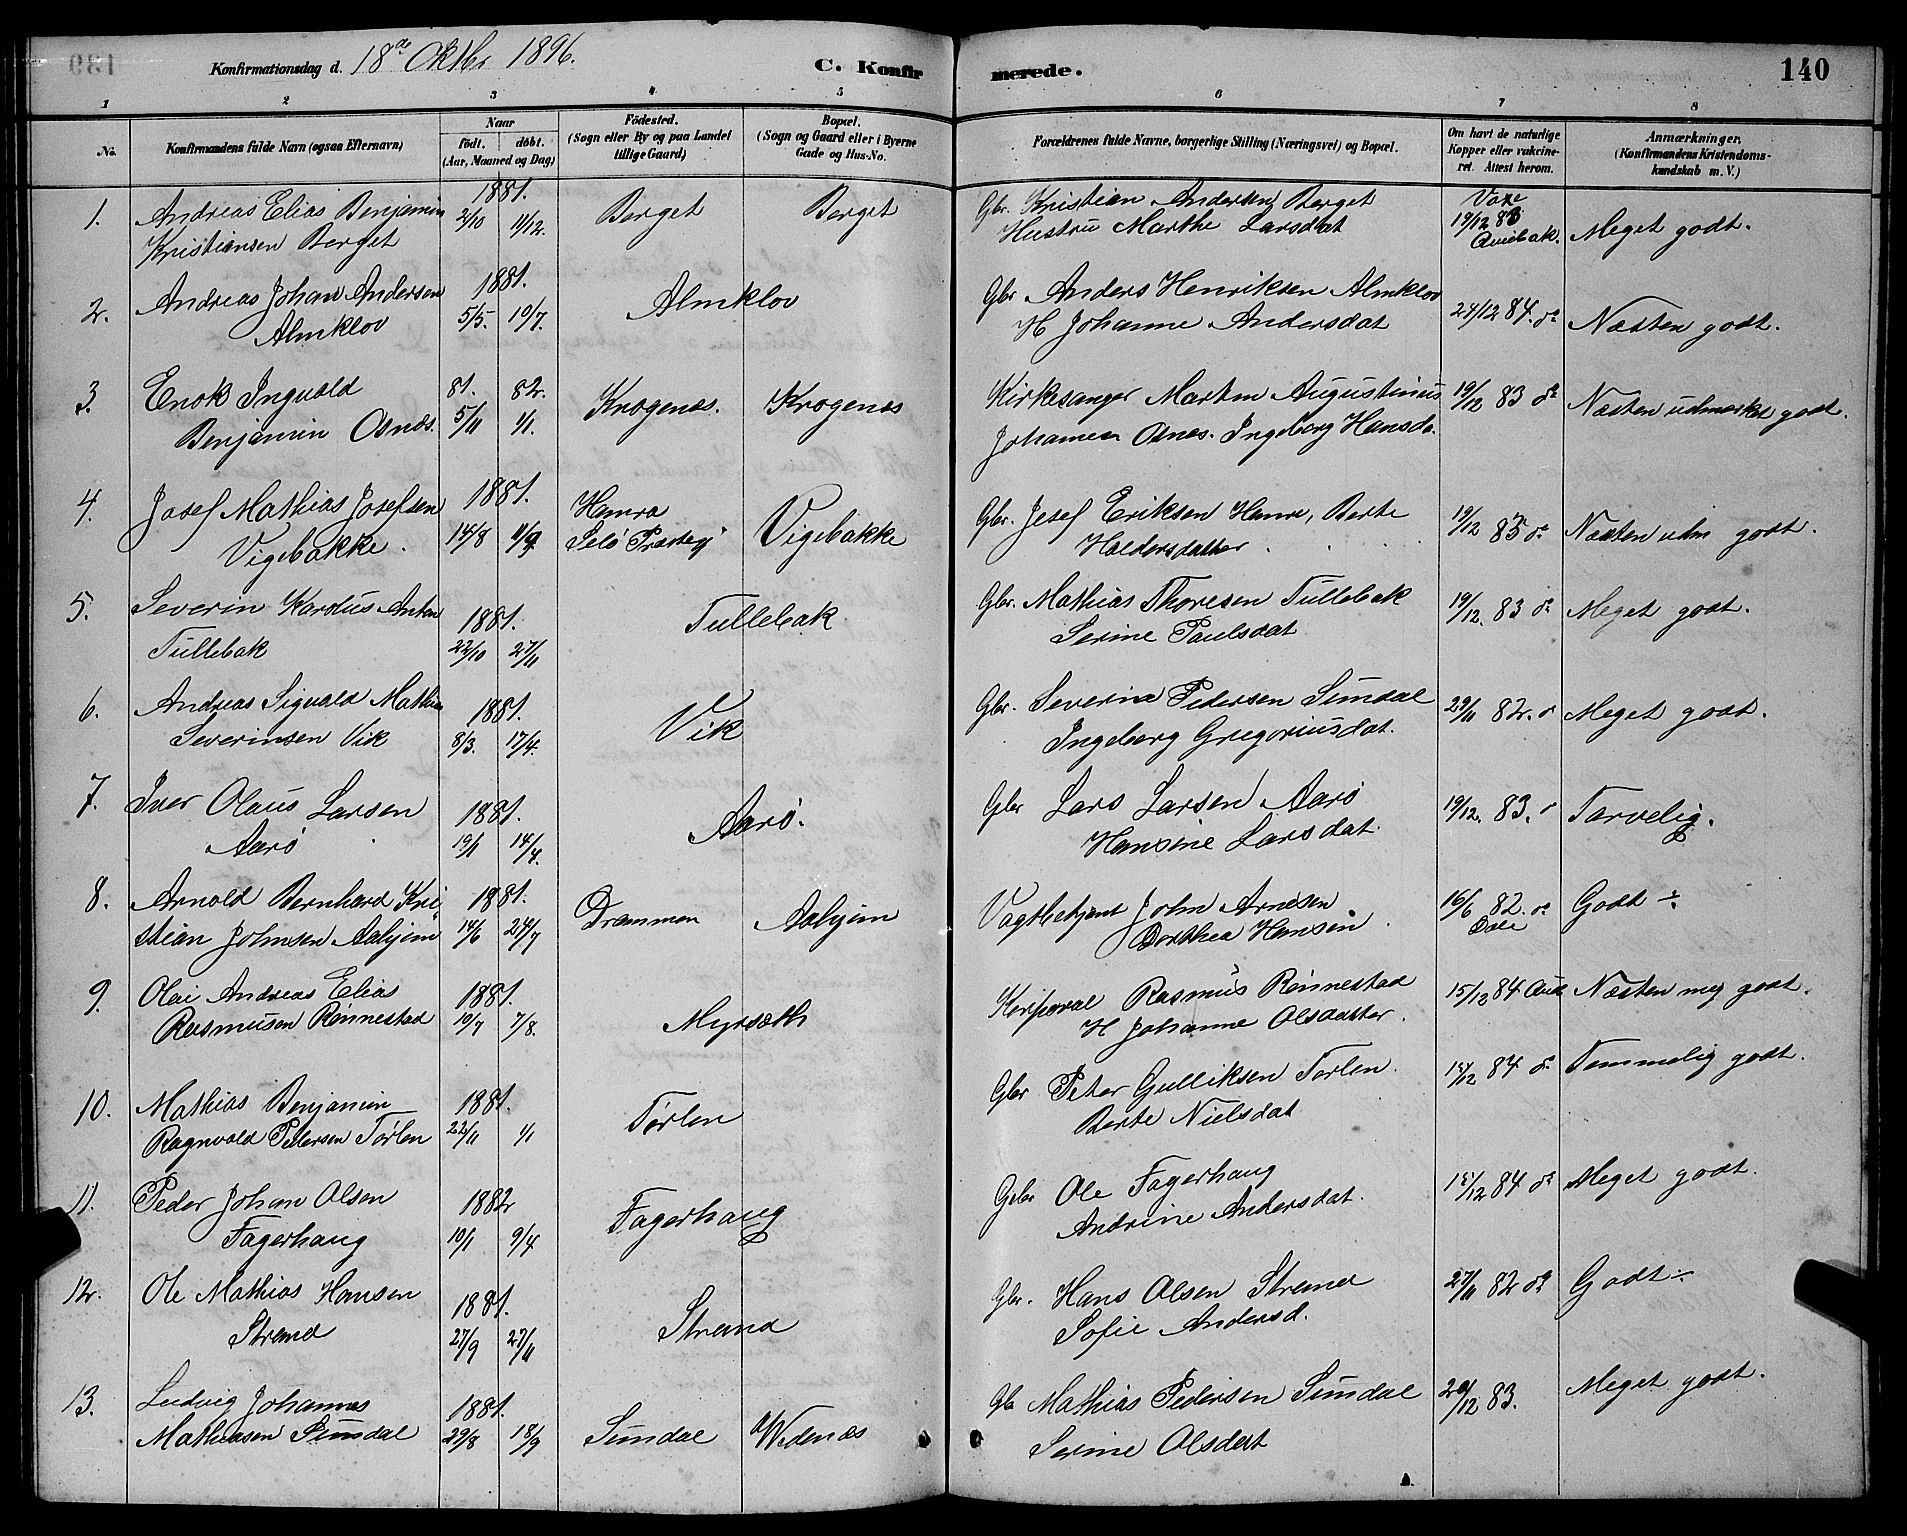 Konfirmationsdag d. 18de Oktbr 1896.
C. Konfirmerede.
140
1 2 3 4 5 6 7 8
No.
Konfirmandens fulde Navn (ogsaa Efternavn)
Naar
født. døbt.
(Aar, Maaned og Dag)
Födested.
(Sogn eller By og paa Landet
tillige Gaard)
Bopæl.
(Sogn og Gaard eller i Byerne
Gade og Hus-No.
Forældrenes fulde Navne, borgerlige Stilling (Næringsvei) og Bopæl.
Om havt de naturlige
Kopper eller vakcine-
ret. Attest herom.
Anmærkninger.
(Konfirmandens Kristendoms-
kundskab m. V.)
1. Andreas Elias Benjamin
Kristiansen Berget
1881.
2/10 11/12.
Berget
Berget
Gbr. Kristian Andersen Berget
Hustru Marthe Larsdat
Vaxe
19/12 83
Meget godt.
2. Andreas Johan Andersen
Almklov
1881.
5/5. 10/7.
Almklov
Gbr Anders Henriksen Almklov
H Johanne Andersdat
24/12 84. do
Næsten godt.
3. Enok Ingvald
Benjamin Osnæs.
81. 82.
5/11 1/1.
Krogenæs.
Krogenæs
Kirkesanger Martin Augustinus
Johansen Osnes. Ingeborg Hansda.
19/12 83 do
Næsten udmerket godt.
4. Josef Mathias Josefsen
Vigebakke.
1881.
14/8 11/9
Hamre
Selö Præstegj
Vigebakke
Gbr. Josef Eriksen Hamre, Berte
Haldorsdatter
19/12 83 do
Næsten udm godt.
5. Severin Karolus Anton
Tullebak
1881.
22/10 27/11
Tullebak
Gbr. Mathias Thoresen Tullebak
Serine Paulsdat
19/12. 83 do
Meget godt.
6. Andreas Sigvald Mathias
Severinsen Vik
1881.
8/3. 17/4.
Vik
Gbr. Severin Pedersen Sundal
Ingeborg Gregoriusdat.
29/11 82. do
Meget godt.
7. Iver Olaus Larsen
Aarö
1881.
19/1 14/4.
Aarö.
Gbr Lars Larsen Aarö
Hansine Larsdat.
19/12. 83. do
Tarvelig.
8. Arnold Bernhard Kri-
stian Johnsen Aahjem
1881.
14/6 24/7
Drammen
Aahjem
Vagtbetjent John Arnesen
Dorthea Hansen.
16/6 82. do
Godt ÷
9. Olai Andreas Elias
Rasmusen Rönnestad
1881.
10/7 7/8.
Myrsæth
Korporal Rasmus Rönnestad
H Johanne Olsdatter.
15/12 84
Næsten meg godt.
10. Mathias Benjamin
Ragnvald Pedersen Tørlen
1881.
22/11 1/1
Tørlen
Gbr Peter Gulliksen Torlen.
Berte Nielsdat
15/12 84 do
Temmelig godt.
11. Peder Johan Olsen
Fagerhaug
1882
10/1 9/4
Fagerhaug
Gbr Ole Fagerhaug
Andrine Andersdat.
15/12 84 do
Meget godt.
12. Ole Mathias Hansen
Strand
1881.
27/9 27/11
Strand
Gbr. Hans Olsen Strand
Sofie Andersd.
27/11 82 do
Godt ÷
13. Ludvig Johannes
Mathiasen Sundal
1881.
29/8 18/9
Sundal
Wedenæs
Gb Mathias Pedersen Sundal
Serine Olsdat
29/12 83.
Meget godt.